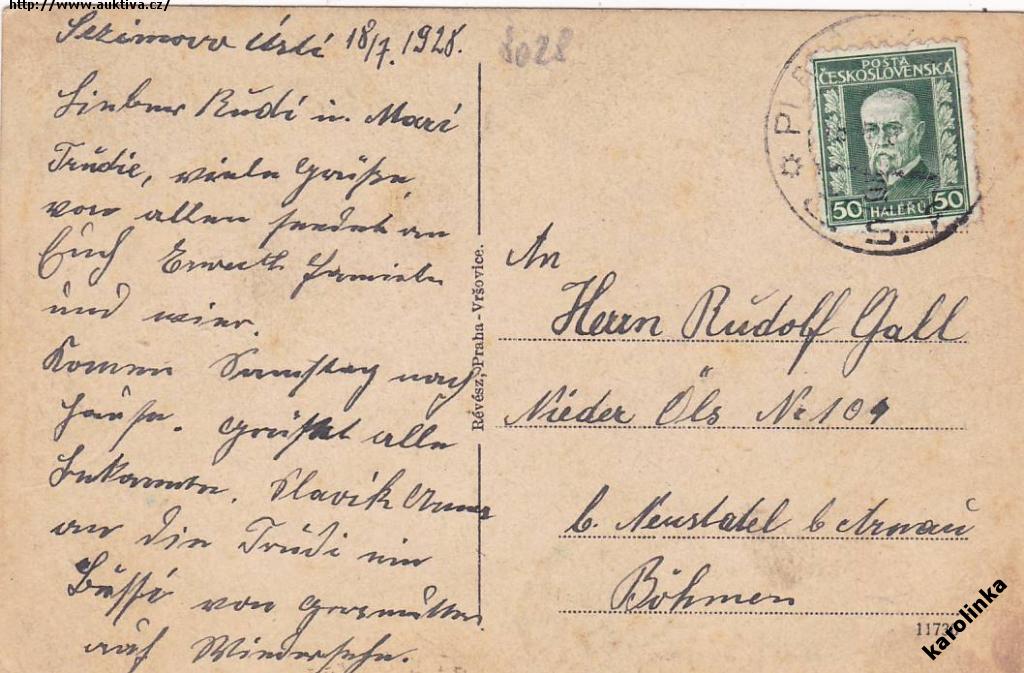 http://www.auktiva.cz/
Sezimovo Ústí 18/7. 1928.
8028
Lieber Rudi u. Mari
Trudie, viele Grüße
von allen sendet an
Euch Familie
und wier.
Komen Samstag nach
Hause. Grüßet alle
bekannte. Slavik Anna
an die Trudi ein
Bussi von Grosmutter
auf Wiedersehn.
Révész, Praha-Vršovice.
POSTA
ČESKOSLOVENSKÁ
50 HALÉŘŮ 50
An
Herrn Rudolf Gall
Nieder Öls Nr 109
b. Neustatel b Arnau
Böhmen
1173
karolinka